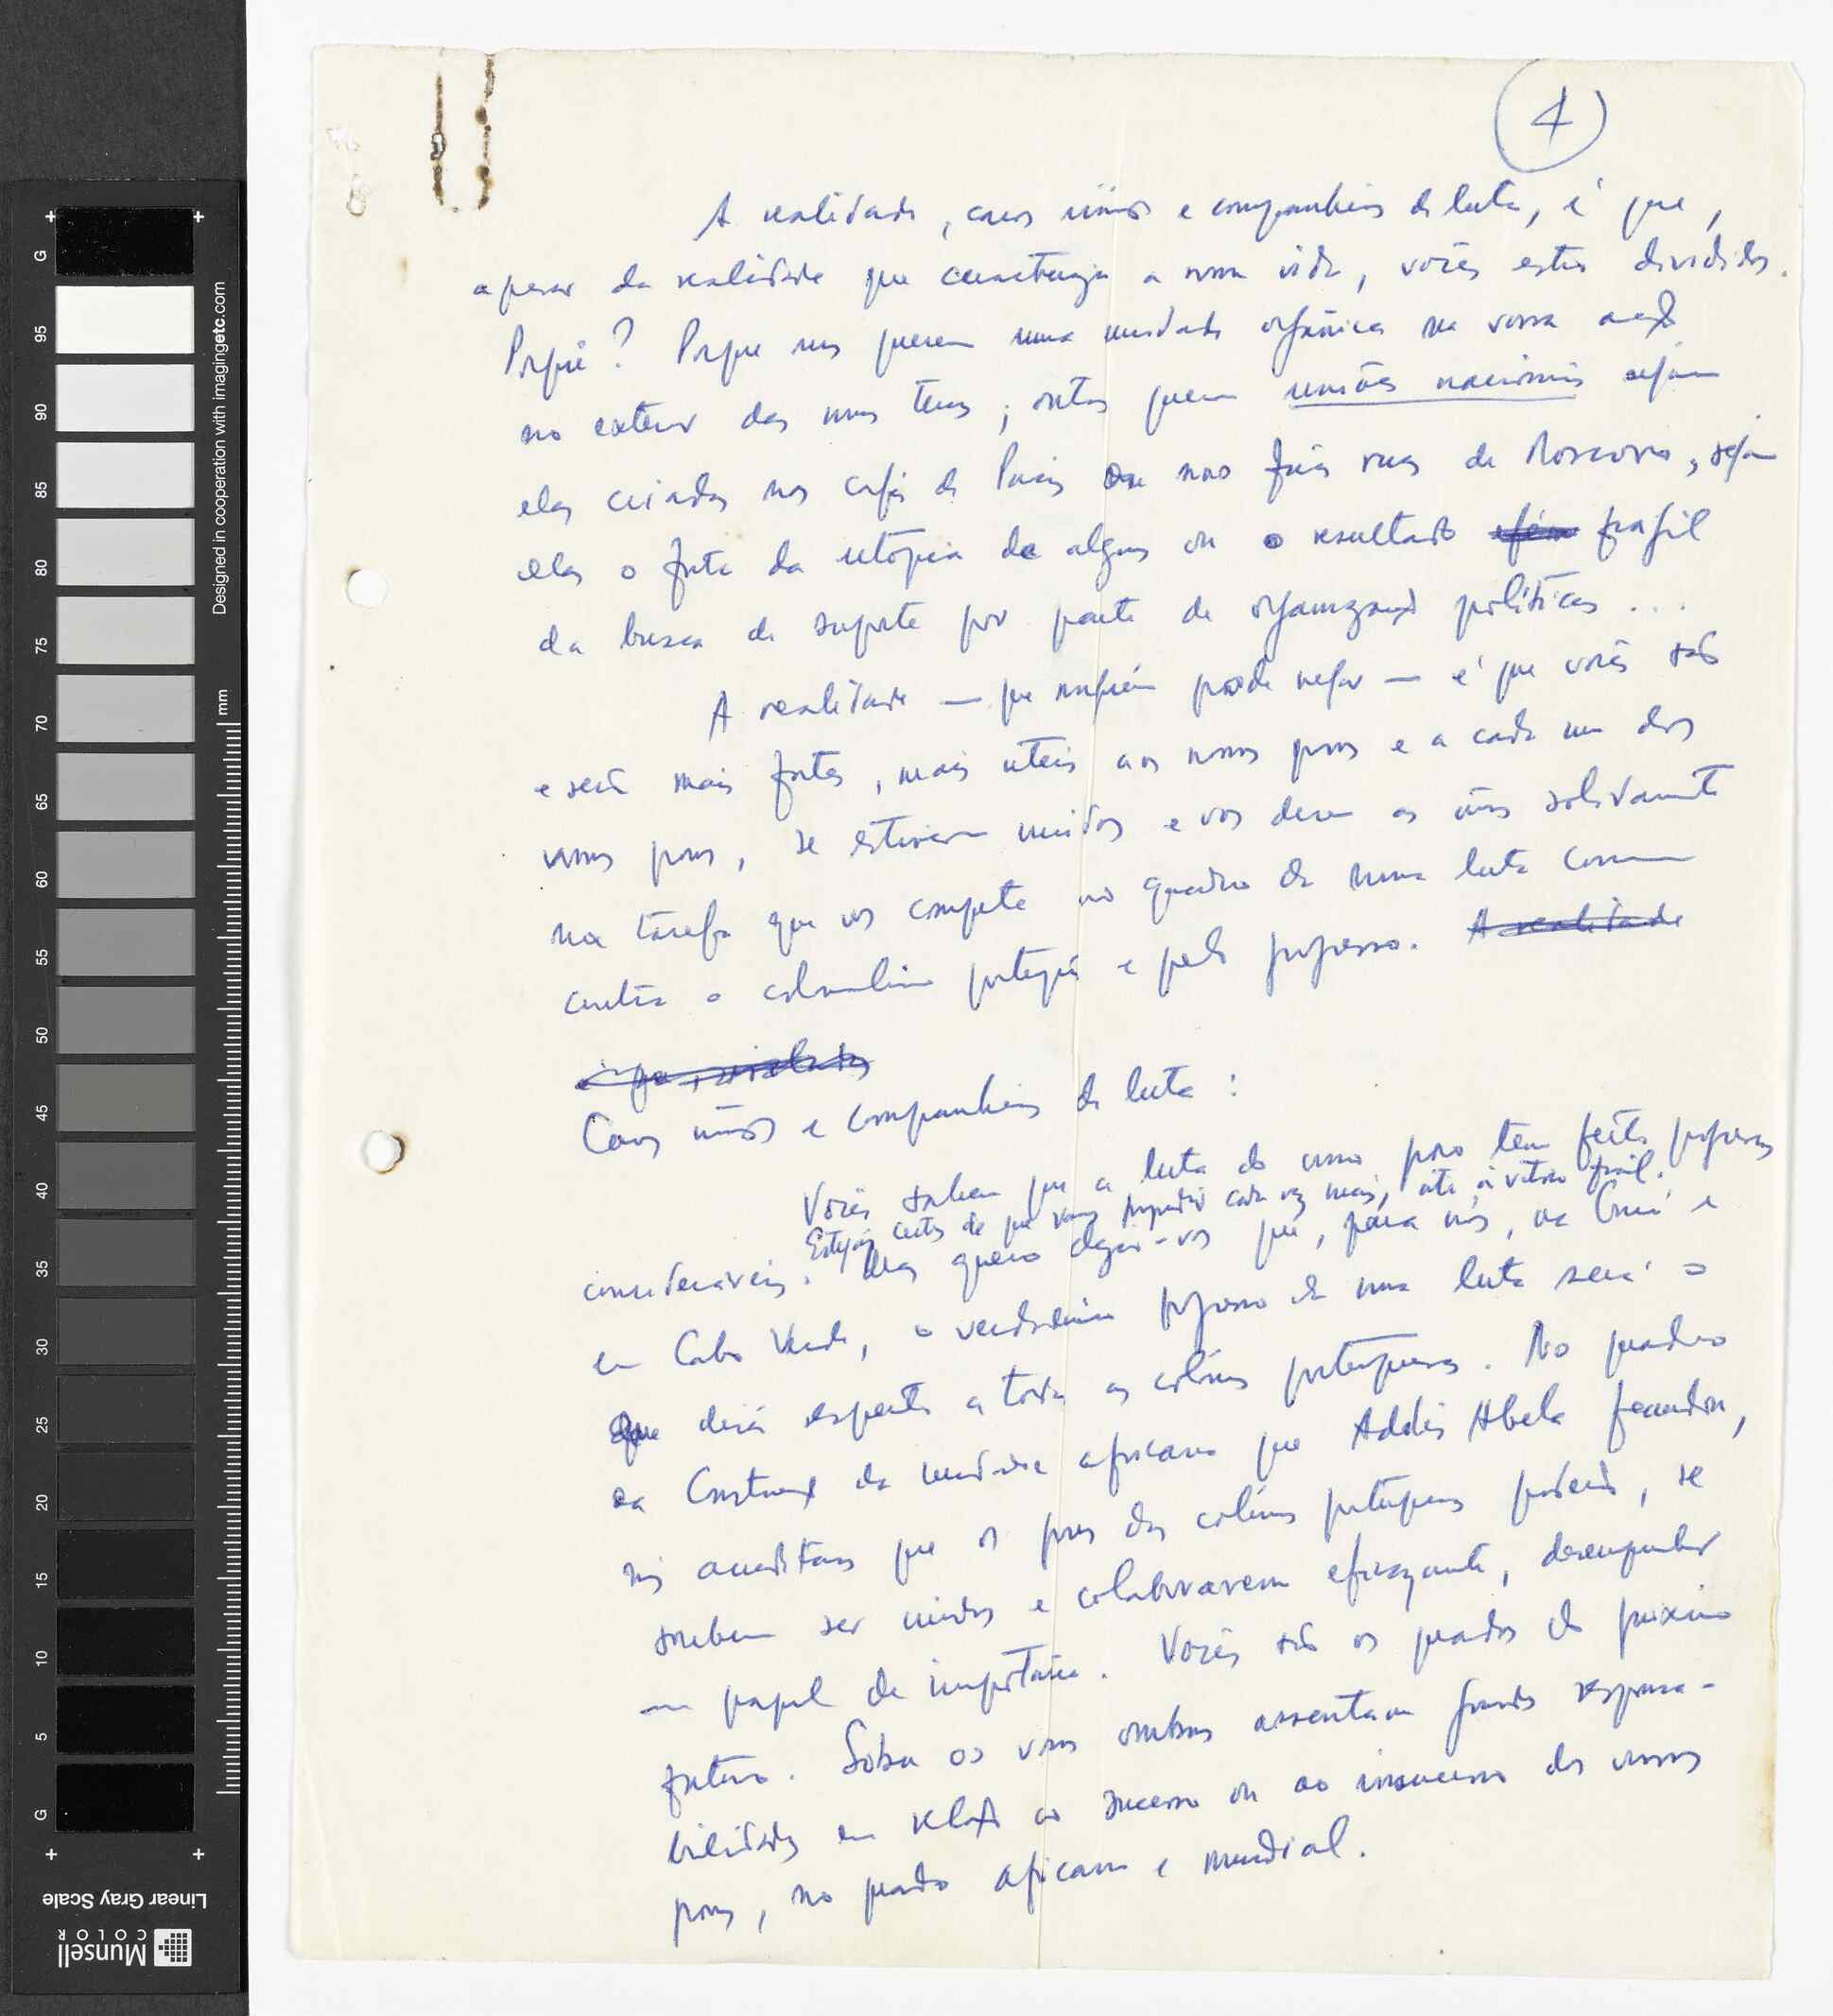 4
A realidade, caros irmãos e companheiros de luta, é que,
apesar da realidade que constrange a nossa vida, vocês estão divididos.
Porquê? Porque uns querem uma unidade orgânica na vossa acção
no exterior das nossas terras; outros querem uniões nacionais sejam
elas criadas nos cafés de Paris ou nas frias ruas de Moscovo, sejam
elas o fruto da utopia de alguns ou o resultado frágil
da busca de suporte por parte de organizações políticas...
A realidade — que ninguém pode negar — é que vocês são
e serão mais fortes, mais úteis aos nossos povos e a cada um dos
nossos povos, se estiverem unidos e vos derem as mãos solidariamente
na tarefa que vos compete no quadro da nossa luta comum
contra o colonialismo português e pelo progresso. A realidade
é que, 
Caros irmãos e companheiros de luta:
Vocês sabem que a luta do nosso povo tem feito progressos
Estejam certos de que vamos progredir cada vez mais, até à vitória final.
consideráveis. Mas quero dizer-vos que, para nós, na Guiné e
em Cabo Verde, o verdadeiro progresso da nossa luta será o
que dirá respeito a todas as colónias portuguesas. No quadro
da Construção da unidade africana que Addis Abeba fecundou,
nós acreditamos que os povos das colónias portuguesas poderão, se
souberem ser unidos e colaborarem eficazmente, desempenhar
um papel de importância. Vocês são os quadros do próximo
futuro. Sobre os vossos ombros assentam grandes responsa-
bilidades em relação ao sucesso ou ao insucesso dos nossos
povos, no quadro africano e mundial.
Designed in cooperation with imagingetc.com
mm
G
95
90
85
80
75
70
65
60
55
50
45
40
35
30
25
20
15
10
5
G
Linear Gray Scale
Munsell
COLOR